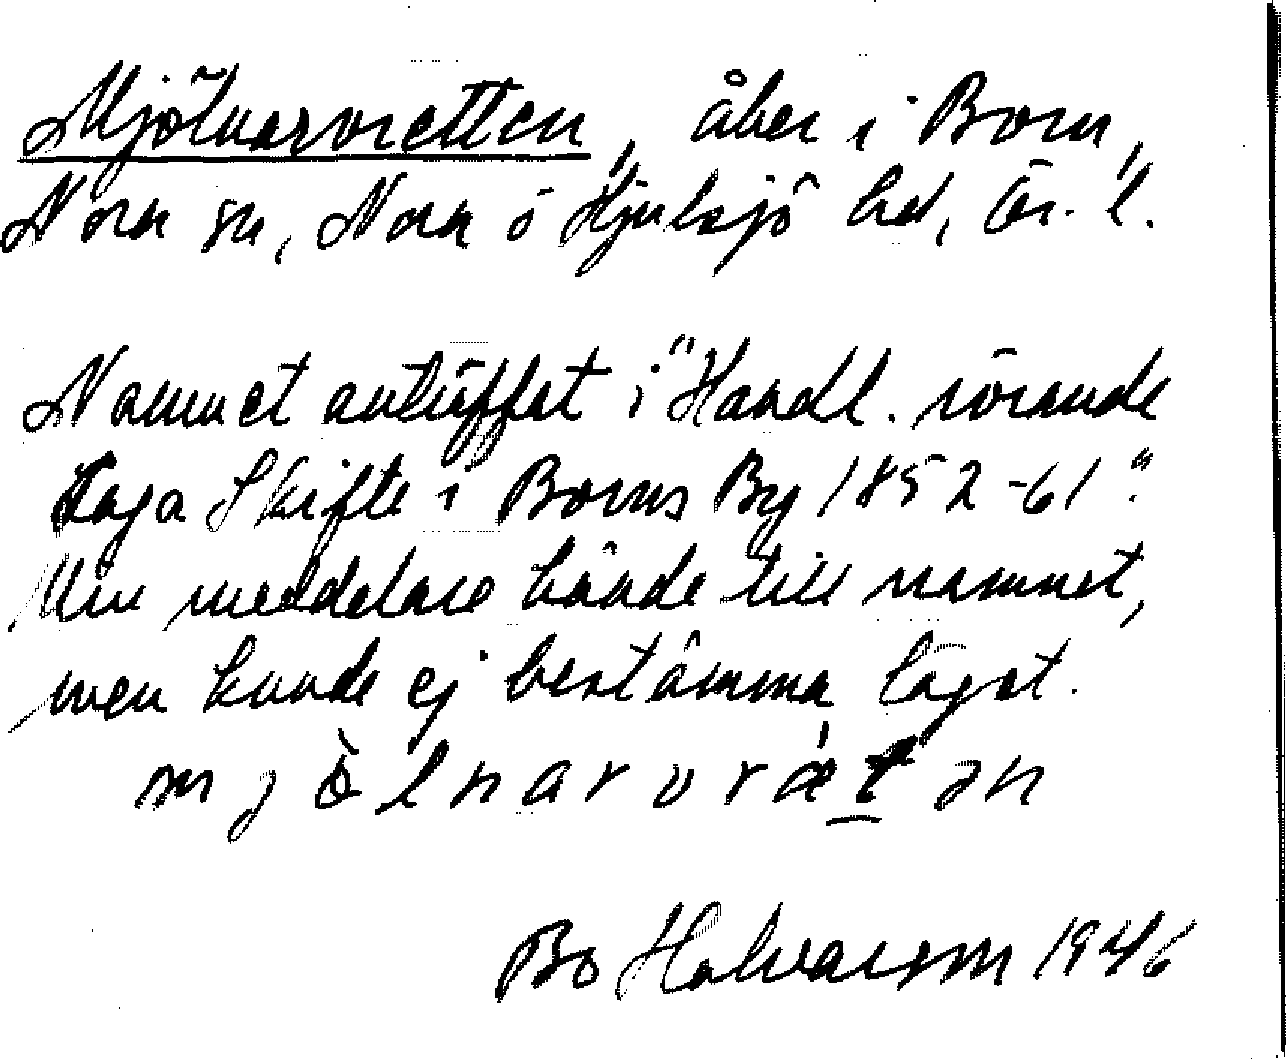 Mjölnarvretten, åker i Born,
Nora sn, Nora o Hjulsjö bd, Ör. l.
Namnet anträffat i "Handl. rörande
Laga Skifte i Borns By 1852-61".
Min meddelare kände till namnet,
men kunde ej bestämma läget.
mjö̀lnarvræ̍t̲ən
Bo Halvarsson 1946